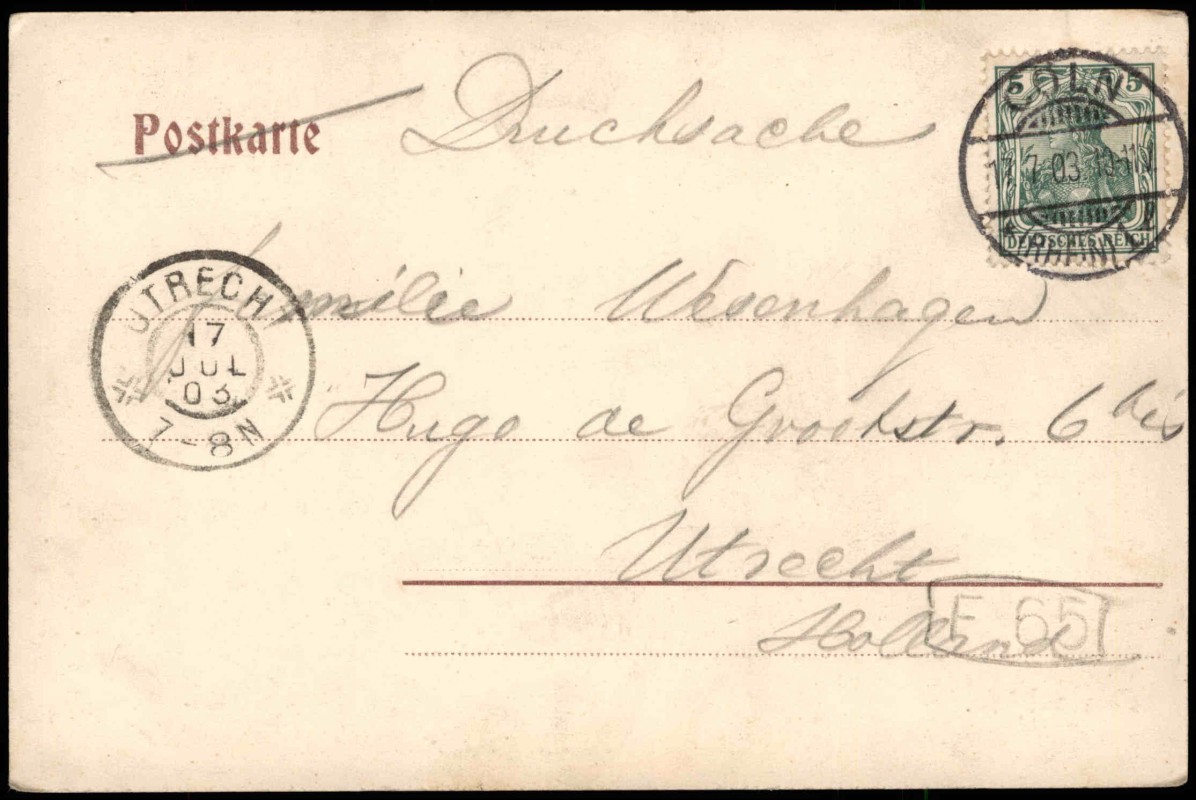 Postkarte
Drucksache
5 5
DEUTSCHES REICH
CÖLN
17.7.03.10-11V
(RHEIN)
UTRECHT
17
JUL
03
7-8N
Familie Wesenhagen
Hugo de Grootstr. 6 bis
Utrecht
Holland
F 65